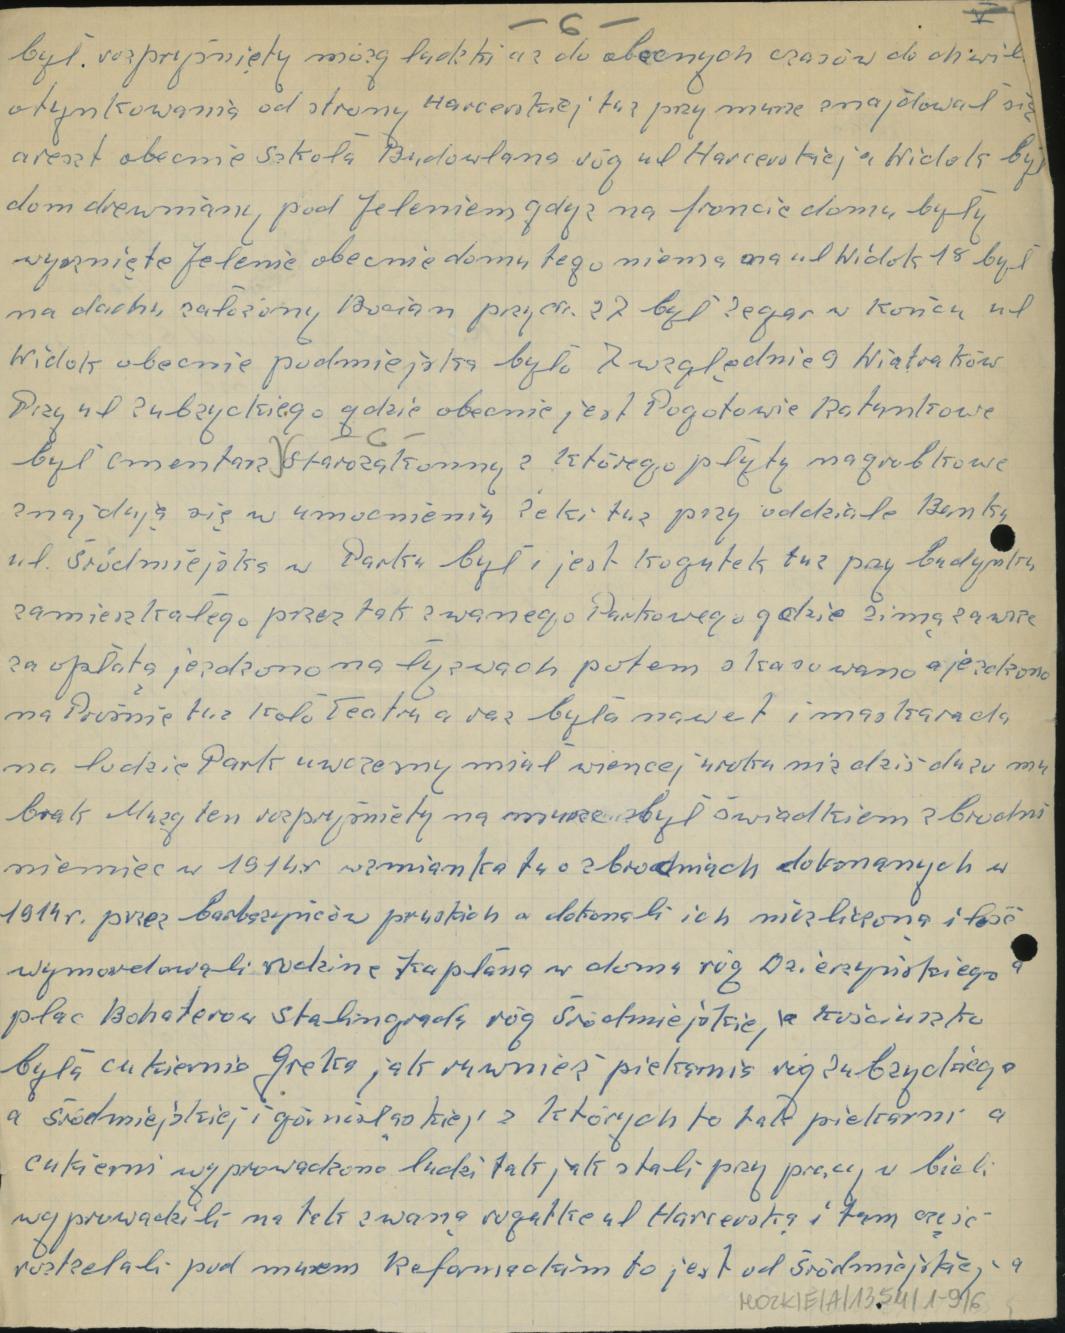 - 6 -
V
był. rozpryśnięty mózg ludzki aż do obecnych czasów do chwili
otynkowania od strony Harcerskiej tuż przy murze znajdował się
areszt obecnie Szkoła Budowlana róg ul Harcerskiej a Widok był
dom drewniany pod Jeleniem gdyż na froncie domu były
wyrznięte Jelenie obecnie domu tego niema na ul Widok 18 był
na dachu założony Bocian przy nr. 27 był Zegar w końcu ul
Widok obecnie podmiejska było 7 względnie 9 Wiatraków
Przy ul Zubrzyckiego gdzie obecnie jest Pogotowie Ratunkowe
- 6 -
był cmentarz Starozakonny z którego płyty nagrobkowe
znajdują się w umocnieniu żeki tuż przy oddziale Banku
ul. Śródmiejska w Parku był i jest kogutek tuż przy budynku
zamieszkałego przez tak zwanego Parkowego gdzie zimą zawsze
za opłatą jeżdzono na łyżwach potem skasowano a jeżdzono
na Prośnie tuż koło Teatru a raz była nawet i maskarada
na lodzie Park uwczesny miał wiencej uroku niż dziś dużo mu
brak Muzg ten rozpryśnięty na murze był świadkiem zbrodni
niemiec w 1914r wzmianka tu o zbrodniach dokonanych w
1914r. przez barbarzyńców pruskich a dokonali ich niezliczoną ilość
wymordowali rodzinę kapłana w domu róg Dzierzyńskiego a
plac Bohaterow Stalingradu róg Śródmiejskiej a Kościuszko
była cukiernia Greka jak ruwnież piekarnia róg Zubrzyckiego
a Śródmiejskiej i górnośląskiej z których to tak piekarni a
cukierni wyprowadzono ludzi tak jak stali przy pracy w bieli
wyprowadzili na tak zwaną rogatkę ul Harcerską i tam część
rostzelali pod murem Reformackim to jest od Śródmiejskiej a
MOZK/E/A/1354/1-9/6